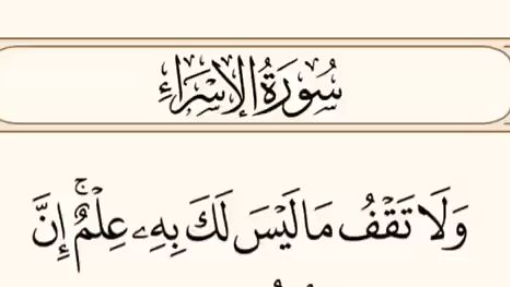 سُورَةُ الإِسْرَاءِ
وَلَا تَقْفُ مَا لَيْسَ لَكَ بِهِۦ عِلْمٌ ۚ إِنَّ